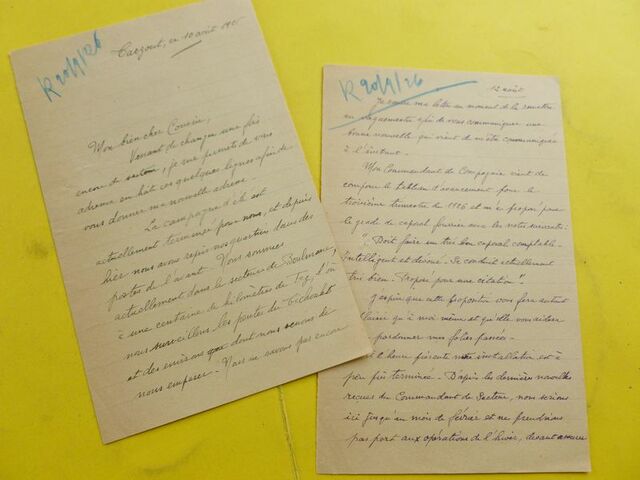 R 20/9/26
Taczout, ce 10 août 1926
Mon bien cher Cousin,
Venant de changer une fois
encore de secteur, je me permets de vous
adresser en hât ces quelques lignes afin de
vous donner ma nouvelle adresse.
La campagne d'été est
actuellement terminée pour nous, et depuis
hier nous avons repris nos quartiers dans des
postes de l'avant. Nous sommes
actuellement dans le secteur de Boulemane,
à une centaine de kilomètres de Fez, l'où
nous surveillons les pentes du Tichoukt
et des environs que dont nous venons de
nous emparer. Nous ne savons pas encore
R 20/9/26
12 août
Je rouvre ma lettre au moment de la remettre
au vaguemestre afin de vous communiquer une
bonne nouvelle qui vient de m'être communiquée
à l'instant.
Mon Commandant de Compagnie vient de
composer le tableau d'avancement pour le
troisième trimestre de 1926 et m'a proposé pour
le grade de caporal fourrier avec les notes suivantes :
"Doit faire un très bon caporal comptable.
Intelligent et dévoué. Se conduit actuellement
très bien. Proposé pour une citation".
J'espère que cette proposition vous fera autant
plaisir qu'à moi même et qu'elle vous aidera
pardonner mes folies passées.
l'heure présente notre installation est à
peu près terminée. D'après les dernières nouvelles
reçues du Commandant du Secteur, nous serions
ici jusqu'au mois de février et ne prendrions
pas part aux opérations de l'hiver, devant assurer